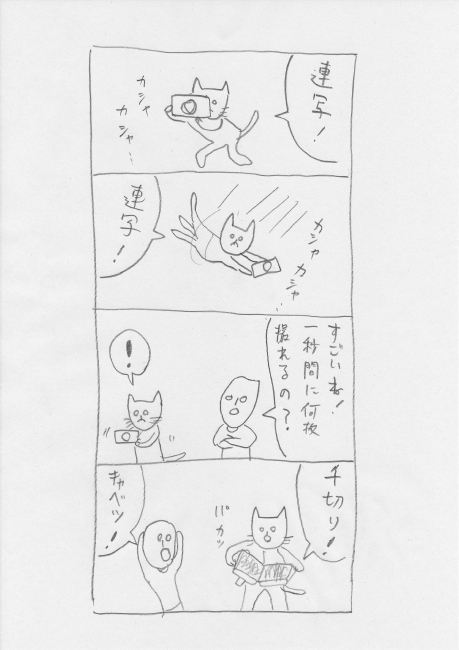 連写!
カシャ
カシャ…
カシャ
カシャ…
連写!
すごいね!
一秒間に何枚
撮れるの?
!
千切り!
パカッ
キャベツ!